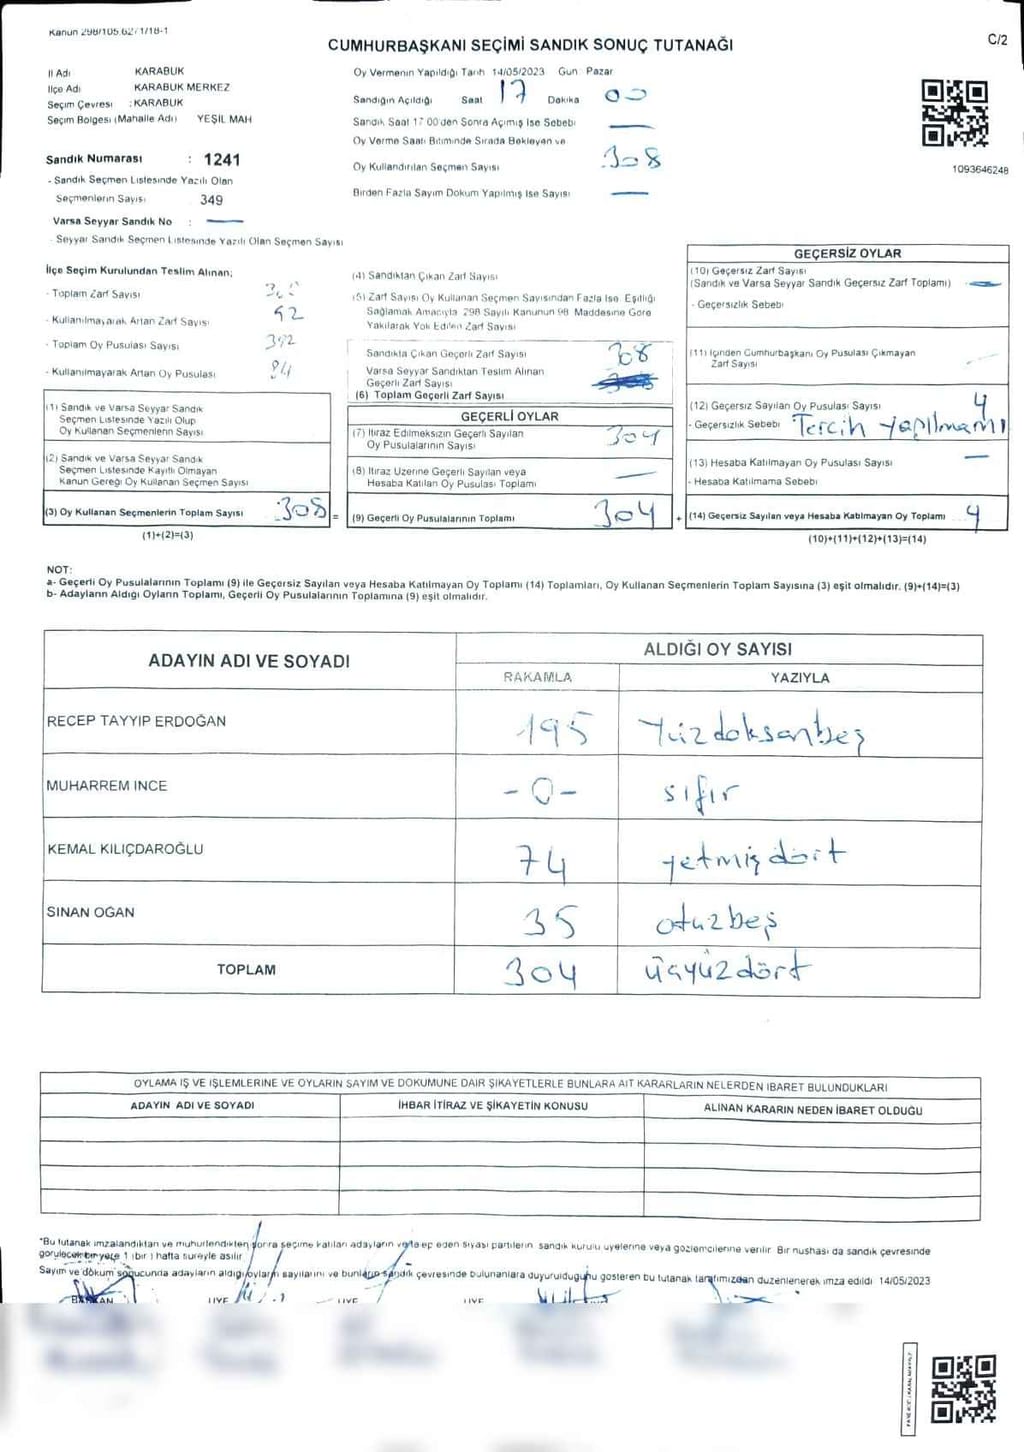 Kanun 298/105.62/1/18-1
CUMHURBAŞKANI SEÇİMİ SANDIK SONUÇ TUTANAĞI
C/2
İl Adı KARABUK
İlçe Adı KARABUK MERKEZ
Seçim Çevresi : KARABUK
Seçim Bölgesi (Mahalle Adı) YEŞİL MAH
Sandık Numarası : 1241
- Sandık Seçmen Listesinde Yazılı Olan
Seçmenlerin Sayısı 349
Varsa Seyyar Sandık No : —
- Seyyar Sandık Seçmen Listesinde Yazılı Olan Seçmen Sayısı
Oy Vermenin Yapıldığı Tarih 14/05/2023 Gun Pazar
Sandığın Açıldığı Saat 17 Dakika 00
Sandık Saat 17 00'den Sonra Açımış İse Sebebi —
Oy Verme Saati Bitiminde Sırada Bekleyen ve
Oy Kullandırılan Seçmen Sayısı 308
Birden Fazla Sayım Dokum Yapılmış İse Sayısı —
1093646248
İlçe Seçim Kurulundan Teslim Alınan;
- Toplam Zarf Sayısı
- Kullanılmayarak Artan Zarf Sayısı 52
- Toplam Oy Pusulası Sayısı 392
- Kullanılmayarak Artan Oy Pusulası 84
(1) Sandık ve Varsa Seyyar Sandık
Seçmen Listesinde Yazılı Olup
Oy Kullanan Seçmenlerin Sayısı
(2) Sandık ve Varsa Seyyar Sandık
Seçmen Listesinde Kayıtlı Olmayan
Kanun Gereği Oy Kullanan Seçmen Sayısı
(3) Oy Kullanan Seçmenlerin Toplam Sayısı 308 =
(1)+(2)=(3)
(4) Sandıktan Çıkan Zarf Sayısı
(5) Zarf Sayısı Oy Kullanan Seçmen Sayısından Fazla İse, Eşitliği
Sağlamak Amacıyla 298 Sayılı Kanunun 98 Maddesine Göre
Yakılarak Yok Edilen Zarf Sayısı
Sandıkta Çıkan Geçerli Zarf Sayısı 308
Varsa Seyyar Sandıktan Teslim Alınan
Geçerli Zarf Sayısı
(6) Toplam Geçerli Zarf Sayısı
GEÇERLİ OYLAR
(7) İtiraz Edilmeksizin Geçerli Sayılan
Oy Pusulalarının Sayısı 304
(8) İtiraz Üzerine Geçerli Sayılan veya
Hesaba Katılan Oy Pusulası Toplamı —
(9) Geçerli Oy Pusulalarının Toplamı 304 +
GEÇERSİZ OYLAR
(10) Geçersiz Zarf Sayısı
(Sandık ve Varsa Seyyar Sandık Geçersiz Zarf Toplamı) —
- Geçersizlik Sebebi
(11) İçinden Cumhurbaşkanı Oy Pusulası Çıkmayan
Zarf Sayısı —
(12) Geçersiz Sayılan Oy Pusulası Sayısı 4
- Geçersizlik Sebebi Tercih Yapılmamı
(13) Hesaba Katılmayan Oy Pusulası Sayısı —
- Hesaba Katılmama Sebebi
(14) Geçersiz Sayılan veya Hesaba Katılmayan Oy Toplamı 4
(10)+(11)+(12)+(13)=(14)
NOT:
a- Geçerli Oy Pusulalarının Toplamı (9) ile Geçersiz Sayılan veya Hesaba Katılmayan Oy Toplamı (14) Toplamları, Oy Kullanan Seçmenlerin Toplam Sayısına (3) eşit olmalıdır. (9)+(14)=(3)
b- Adayların Aldığı Oyların Toplamı, Geçerli Oy Pusulalarının Toplamına (9) eşit olmalıdır.
ADAYIN ADI VE SOYADI
ALDIĞI OY SAYISI
RAKAMLA YAZIYLA
RECEP TAYYIP ERDOĞAN 195 Yüzdoksanbeş
MUHARREM INCE - 0 - sıfır
KEMAL KILIÇDAROĞLU 74 yetmişdört
SINAN OGAN 35 otuzbeş
TOPLAM 304 üçyüzdört
OYLAMA İŞ VE İŞLEMLERINE VE OYLARIN SAYIM VE DOKUMUNE DAIR ŞIKAYETLERLE BUNLARA AIT KARARLARIN NELERDEN IBARET BULUNDUKLARI
ADAYIN ADI VE SOYADI İHBAR İTİRAZ VE ŞİKAYETİN KONUSU ALINAN KARARIN NEDEN İBARET OLDUĞU
*Bu tutanak imzalandıktan ve muhurlendikten sonra seçime katılan adayların veya talep eden siyası partilerin sandık kurulu uyelerine veya gozlemcilerine verilir Bir nushası da sandık çevresinde
gorulecek bir yere 1 (bir) hafta sureyle asılır
Sayım ve dokum sonucunda adayların aldığı oyların sayılarını ve bunların sandık çevresinde bulunanlara duyurulduğunu gosteren bu tutanak tarafımızdan duzenlenerek imza edildi 14/05/2023
BAŞKAN UYE UYE UYE